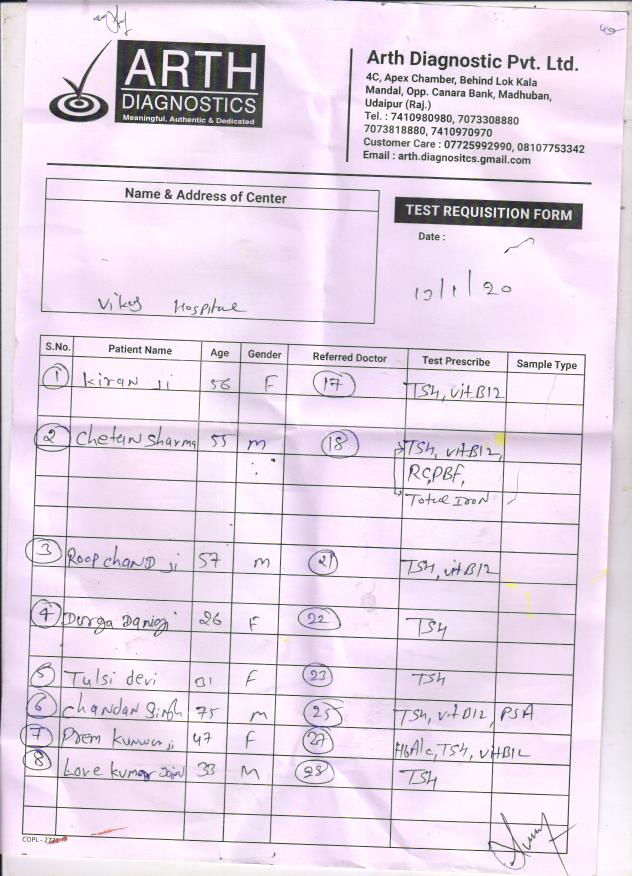 ARTH
DIAGNOSTICS
Meaningful, Authentic & Dedicated
Arth Diagnostic Pvt. Ltd.
4C, Apex Chamber, Behind Lok Kala
Mandal, Opp. Canara Bank, Madhuban,
Udaipur (Raj.)
Tel. : 7410980980, 7073308880
7073818880, 7410970970
Customer Care : 07725992990, 08107753342
Email : arth.diagnositcs.gmail.com
Name & Address of Center
Hospital
TEST REQUISITION FORM
Date :
S.No. Patient Name Age Gender Referred Doctor Test Prescribe Sample Type
1 Kiran Ji 56 F 17 TSH, vit B12
2 Chetan Sharma 55 M 18 TSH, vit B12,
RC, PBF,
Total Iron
3 Roopchand ji 57 M 21 TSH, vit B12
4 Durga 26 F 22 TSH
5 Tulsi devi F 23 TSH
6 Chandan Singh 75 M 25 TSH, vit B12, PSA
7 Prem Kunwar ji 47 F 27 HbA1c, TSH, vit B12
8 Love Kumar Jain 33 M 28 TSH
COPL - 2771